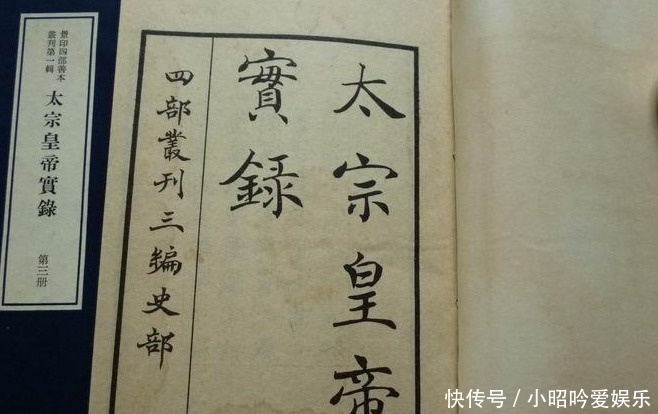 景印四部善本
叢刊第一輯
太宗皇帝實錄
第三册
太宗皇帝
實録
四部叢刊三編史部
快传号／小昭吟爱娱乐